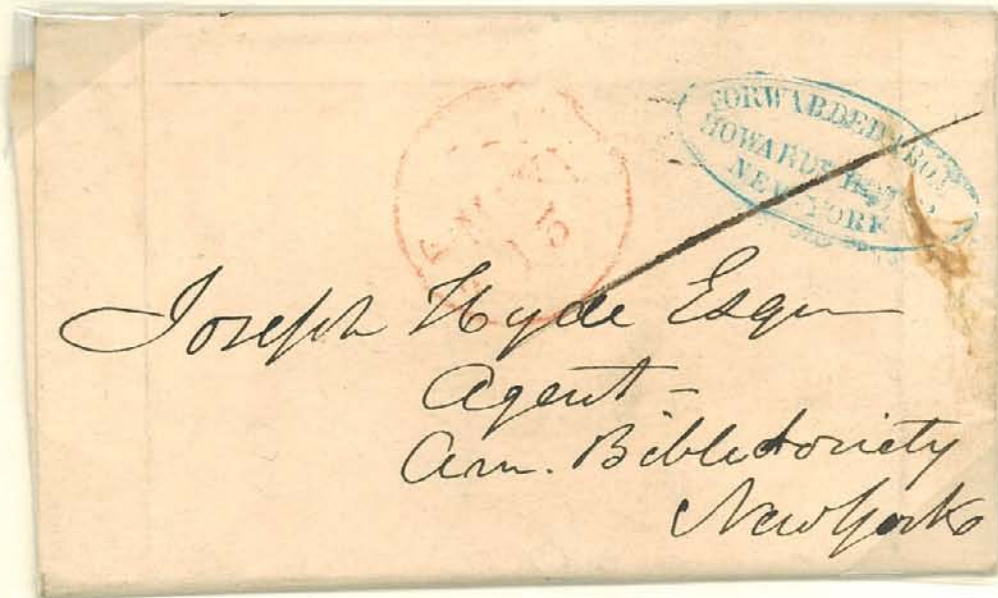 FORWARDED FROM
HOWARD
NEW-YORK
15
Joseph Hyde Esqr
Agent -
Am. Bible Society
New York